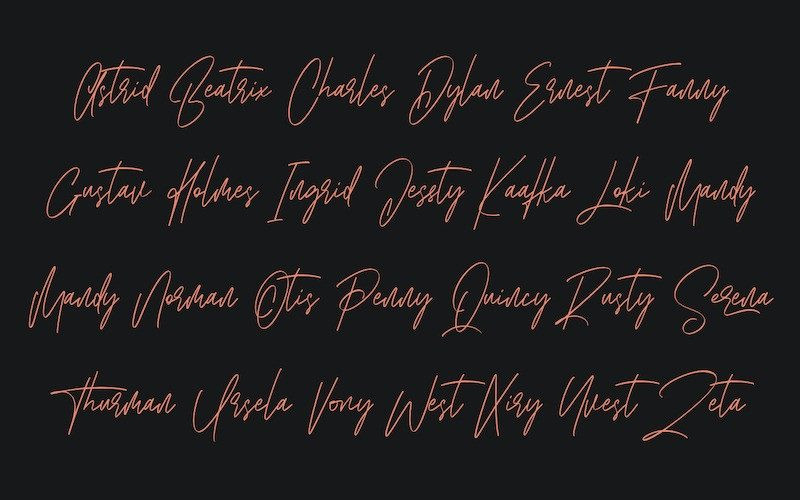 Astrid Beatrix Charles Dylan Ernest Fanny
Gustav Holmes Ingrid Jessty Kaafka Loki Mandy
Mandy Norman Otis Penny Quincy Rusty Serena
Thurman Ursela Vony West Xiry Yvest Zeta